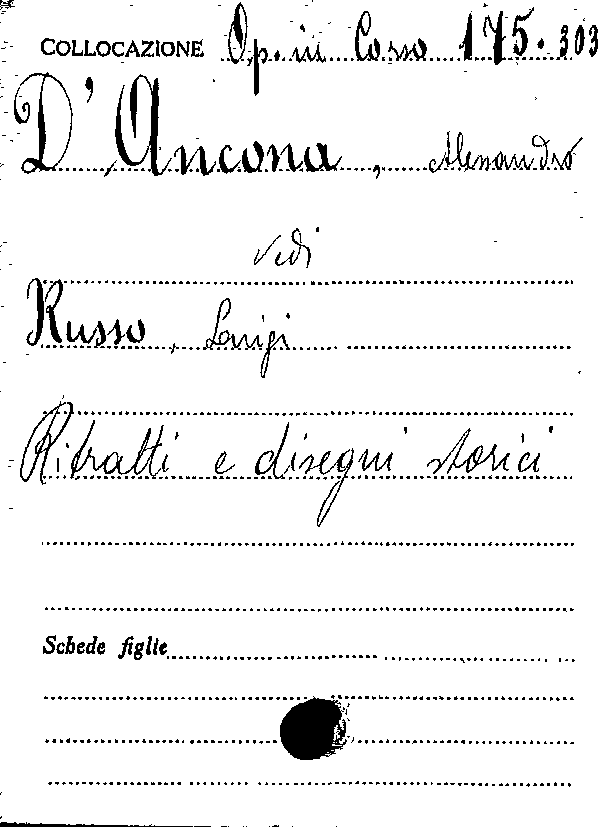 COLLOCAZIONE Op. in Corso 175.303
D'Ancona, Alessandro
vedi
Russo, Luigi
Ritratti e disegni storici
Schede figlie